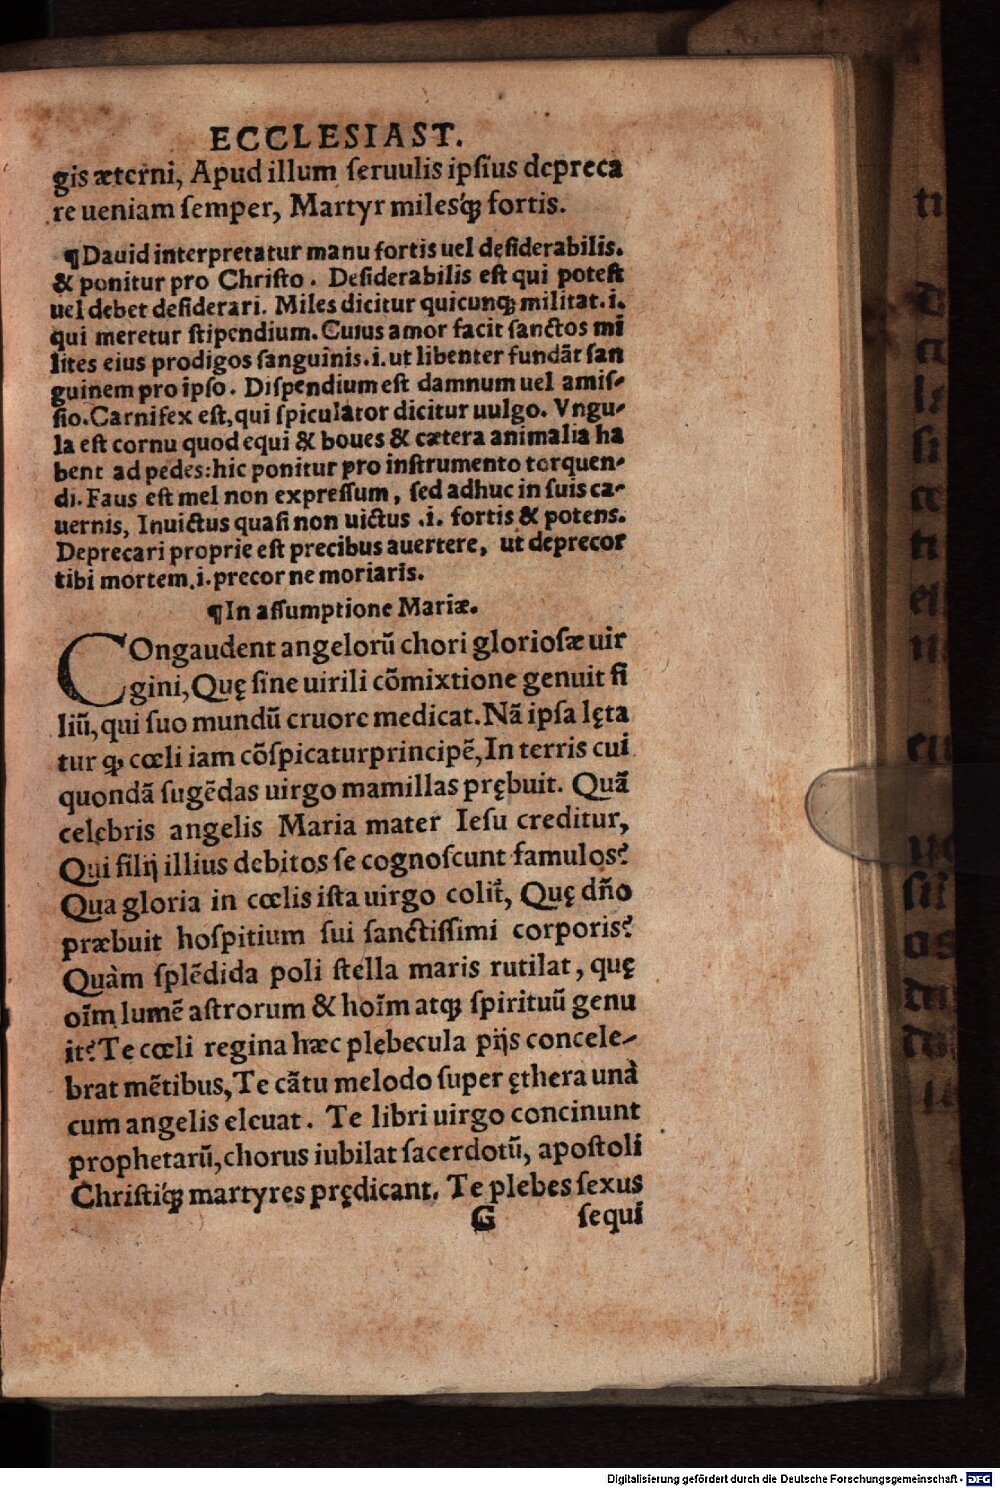 ECCLESIAST.
gis æterni, Apud illum ſeruulis ipſius depreca
re ueniam ſemper, Martyr milesq́ꝫ fortis.
¶Dauid interpretatur manu fortis uel deſiderabilis.
& ponitur pro Chriſto. Deſiderabilis eſt qui poteſt
uel debet deſiderari. Miles dicitur quicunqꝫ militat. i.
qui meretur ſtipendium. Cuius amor facit ſanctos mi
lites eius prodigos ſanguinis. i. ut libenter fundãt ſan
guinem pro ipſo. Diſpendium eſt damnum uel amiſ-
ſio. Carnifex eſt, qui ſpiculator dicitur uulgo. Vngu-
la eſt cornu quod equi & boues & cætera animalia ha
bent ad pedes: hic ponitur pro inſtrumento torquen-
di. Faus eſt mel non expreſſum, ſed adhuc in ſuis ca-
uernis, Inuictus quaſi non uictus .i. fortis & potens.
Deprecari proprie eſt precibus auertere, ut deprecor
tibi mortem .i. precor ne moriaris.
¶In aſſumptione Mariæ.
COngaudent angelorũ chori glorioſæ uir
gini, Quę ſine uirili cõmixtione genuit fi
liũ, qui ſuo mundũ cruore medicat. Nã ipſa lęta
tur qꝫ cœli iam cõſpicatur principẽ, In terris cui
quondã ſugẽdas uirgo mamillas prębuit. Quã
celębris angelis Maria mater Ieſu creditur,
Qui filij illius debitos ſe cognoſcunt famulos?
Qua gloria in cœlis iſta uirgo colit̃, Quę dño
præbuit hoſpitium ſui ſanctiſſimi corporis?
Quàm ſplẽdida poli ſtella maris rutilat, quę
oĩm lumẽ aſtrorum & hoĩm atqꝫ ſpirituũ genu
it? Te cœli regina hæc plebecula pijs concele-
brat mẽtibus, Te cãtu melodo ſuper ęthera unà
cum angelis eleuat. Te libri uirgo concinunt
prophetarũ, chorus iubilat ſacerdotũ, apoſtoli
Chriſtiq́ꝫ martyres prędicant. Te plebes ſexus
G ſequi
Digitalisierung gefördert durch die Deutsche Forschungsgemeinschaft - DFG